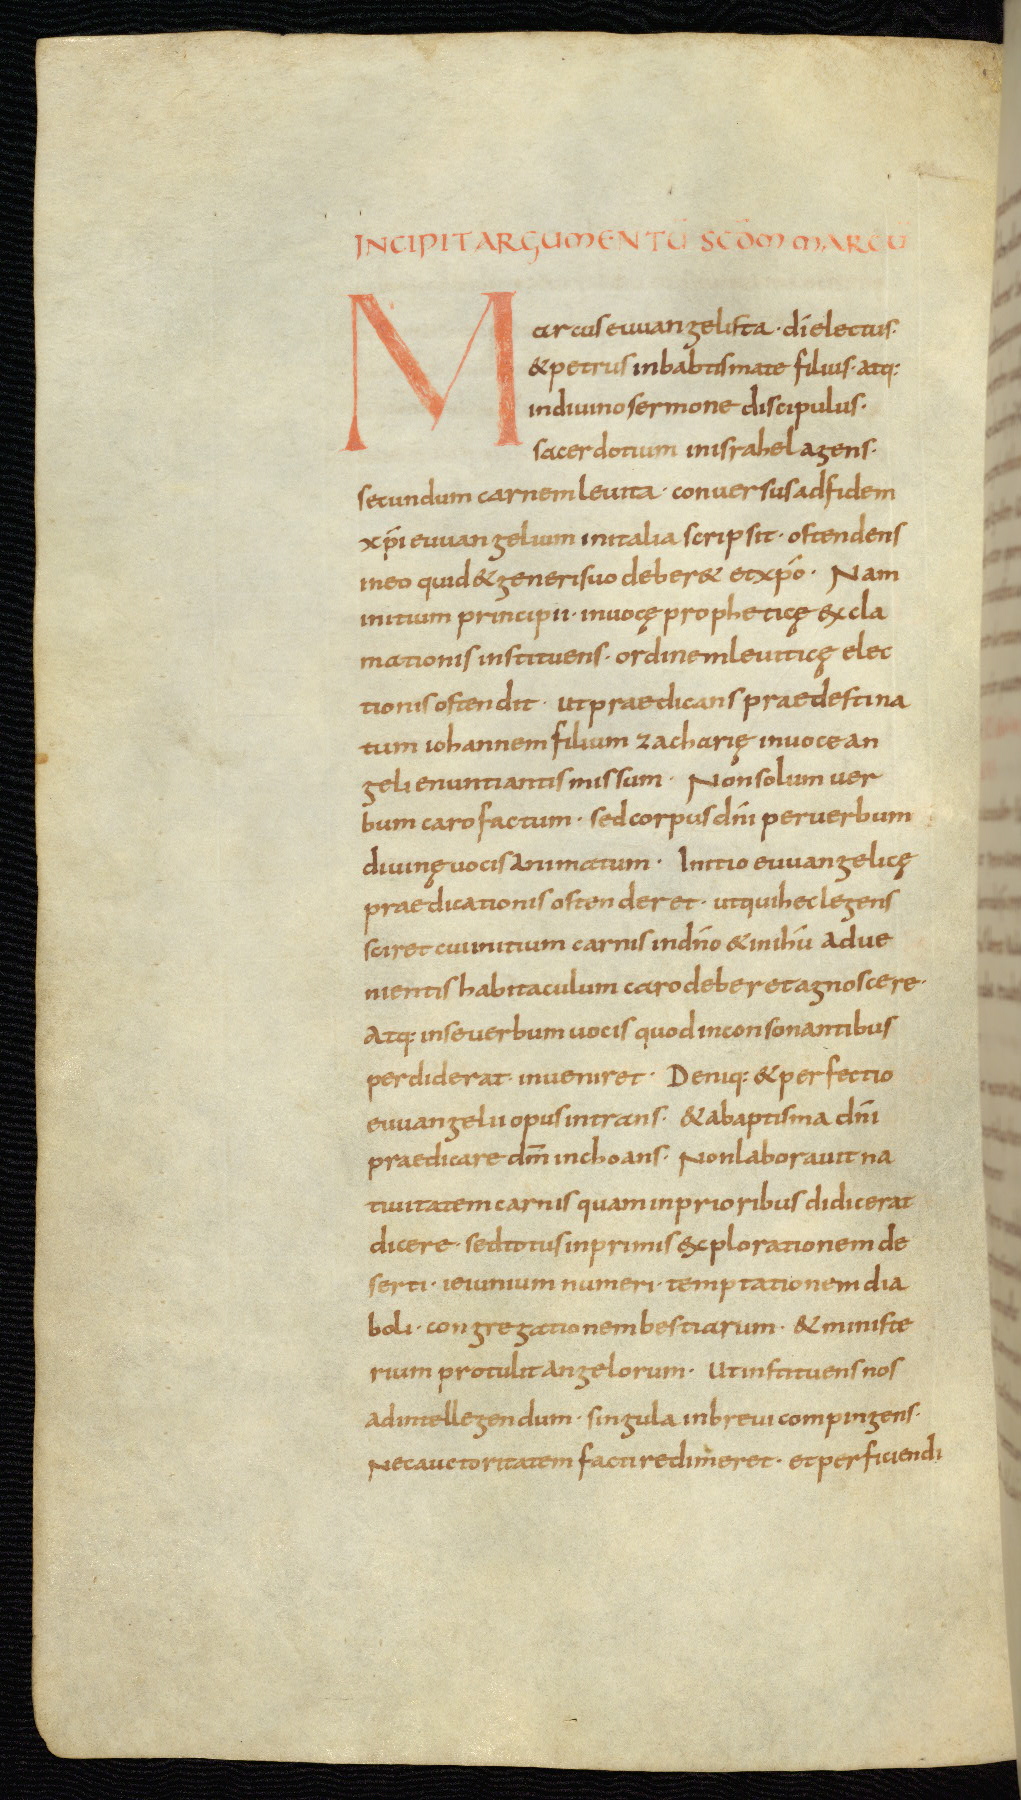 INCIPIT ARGUMENTŪ SCDM MARCŪ
Marcus euuangelista · dī electus ·
& petrus in babtismate filius · atq:
in diuino sermone discipulus ·
sacerdotium in israhel agens ·
secundum carnem leuita · conuersus ad fidem
xp̄i euuangelium in italia scripsit · ostendens
in eo quid & generi suo deber& et xp̄o · Nam
initium principii · in uocę propheticę excla
mationis instituens · ordinem leuiticę elec
tionis ostendit · Ut praedicans praedestina
tum iohannem filium zacharię in uoce an
geli enuntiantis missum · Non solum uer
bum caro factum · sed corpus dn̄i per uerbum
diuinę uocis animatum · Initio euuangelicę
praedicationis ostenderet · ut qui hec legens
sciret cui initium carnis in dn̄o & in ihū adue
nientis habitaculum caro deberet agnoscere ·
Atq: in se uerbum uocis quod in consonantibus
perdiderat · inueniret · Deniq: & perfectio
euuangelii opus intrans · & a baptisma dn̄i
praedicare dm̄ inchoans · Non laborauit na
tiuitatem carnis quam in prioribus didicerat
dicere · sed totus in primis explorationem de
serti · ieiunium numeri · temptationem dia
boli · congregationem bestiarum · & ministe
rium protulit angelorum · Ut instituens nos
ad intellegendum · singula in breui compingens ·
Nec auctoritatem facti redimeret · et perficiendi